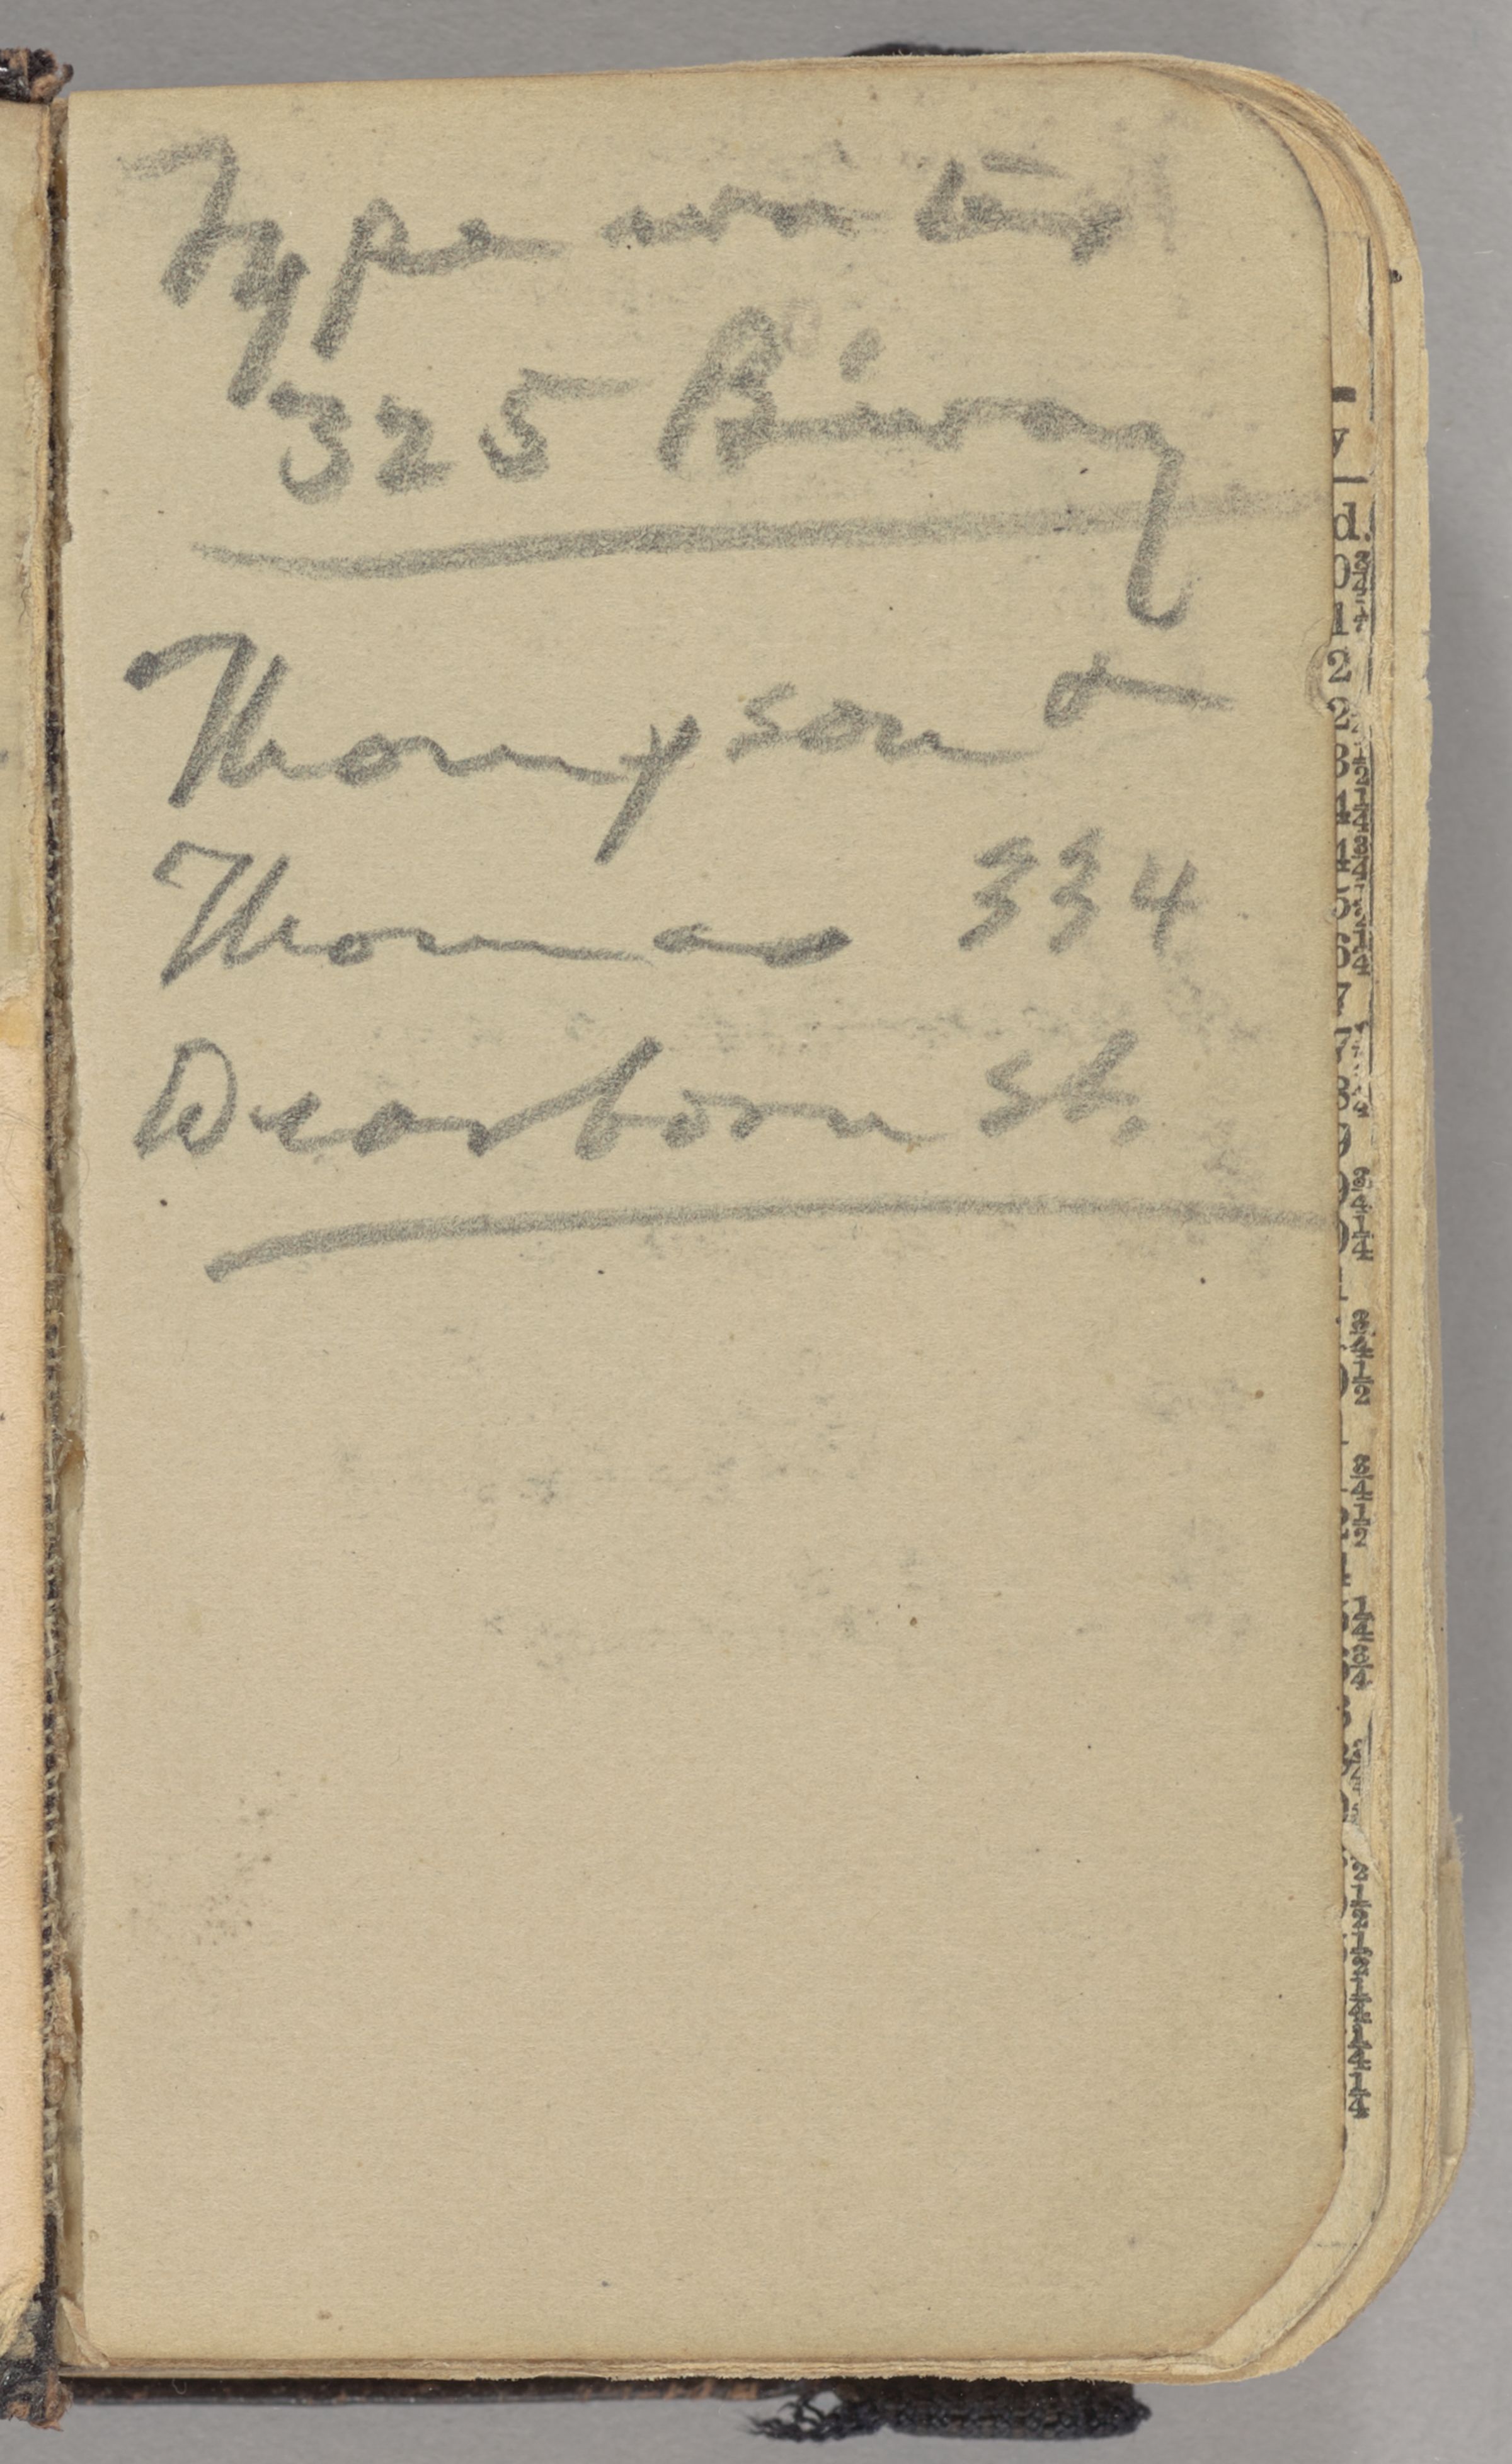 Type writer
325 B'way
Thompson &
Thomas 334
Dearborn St.